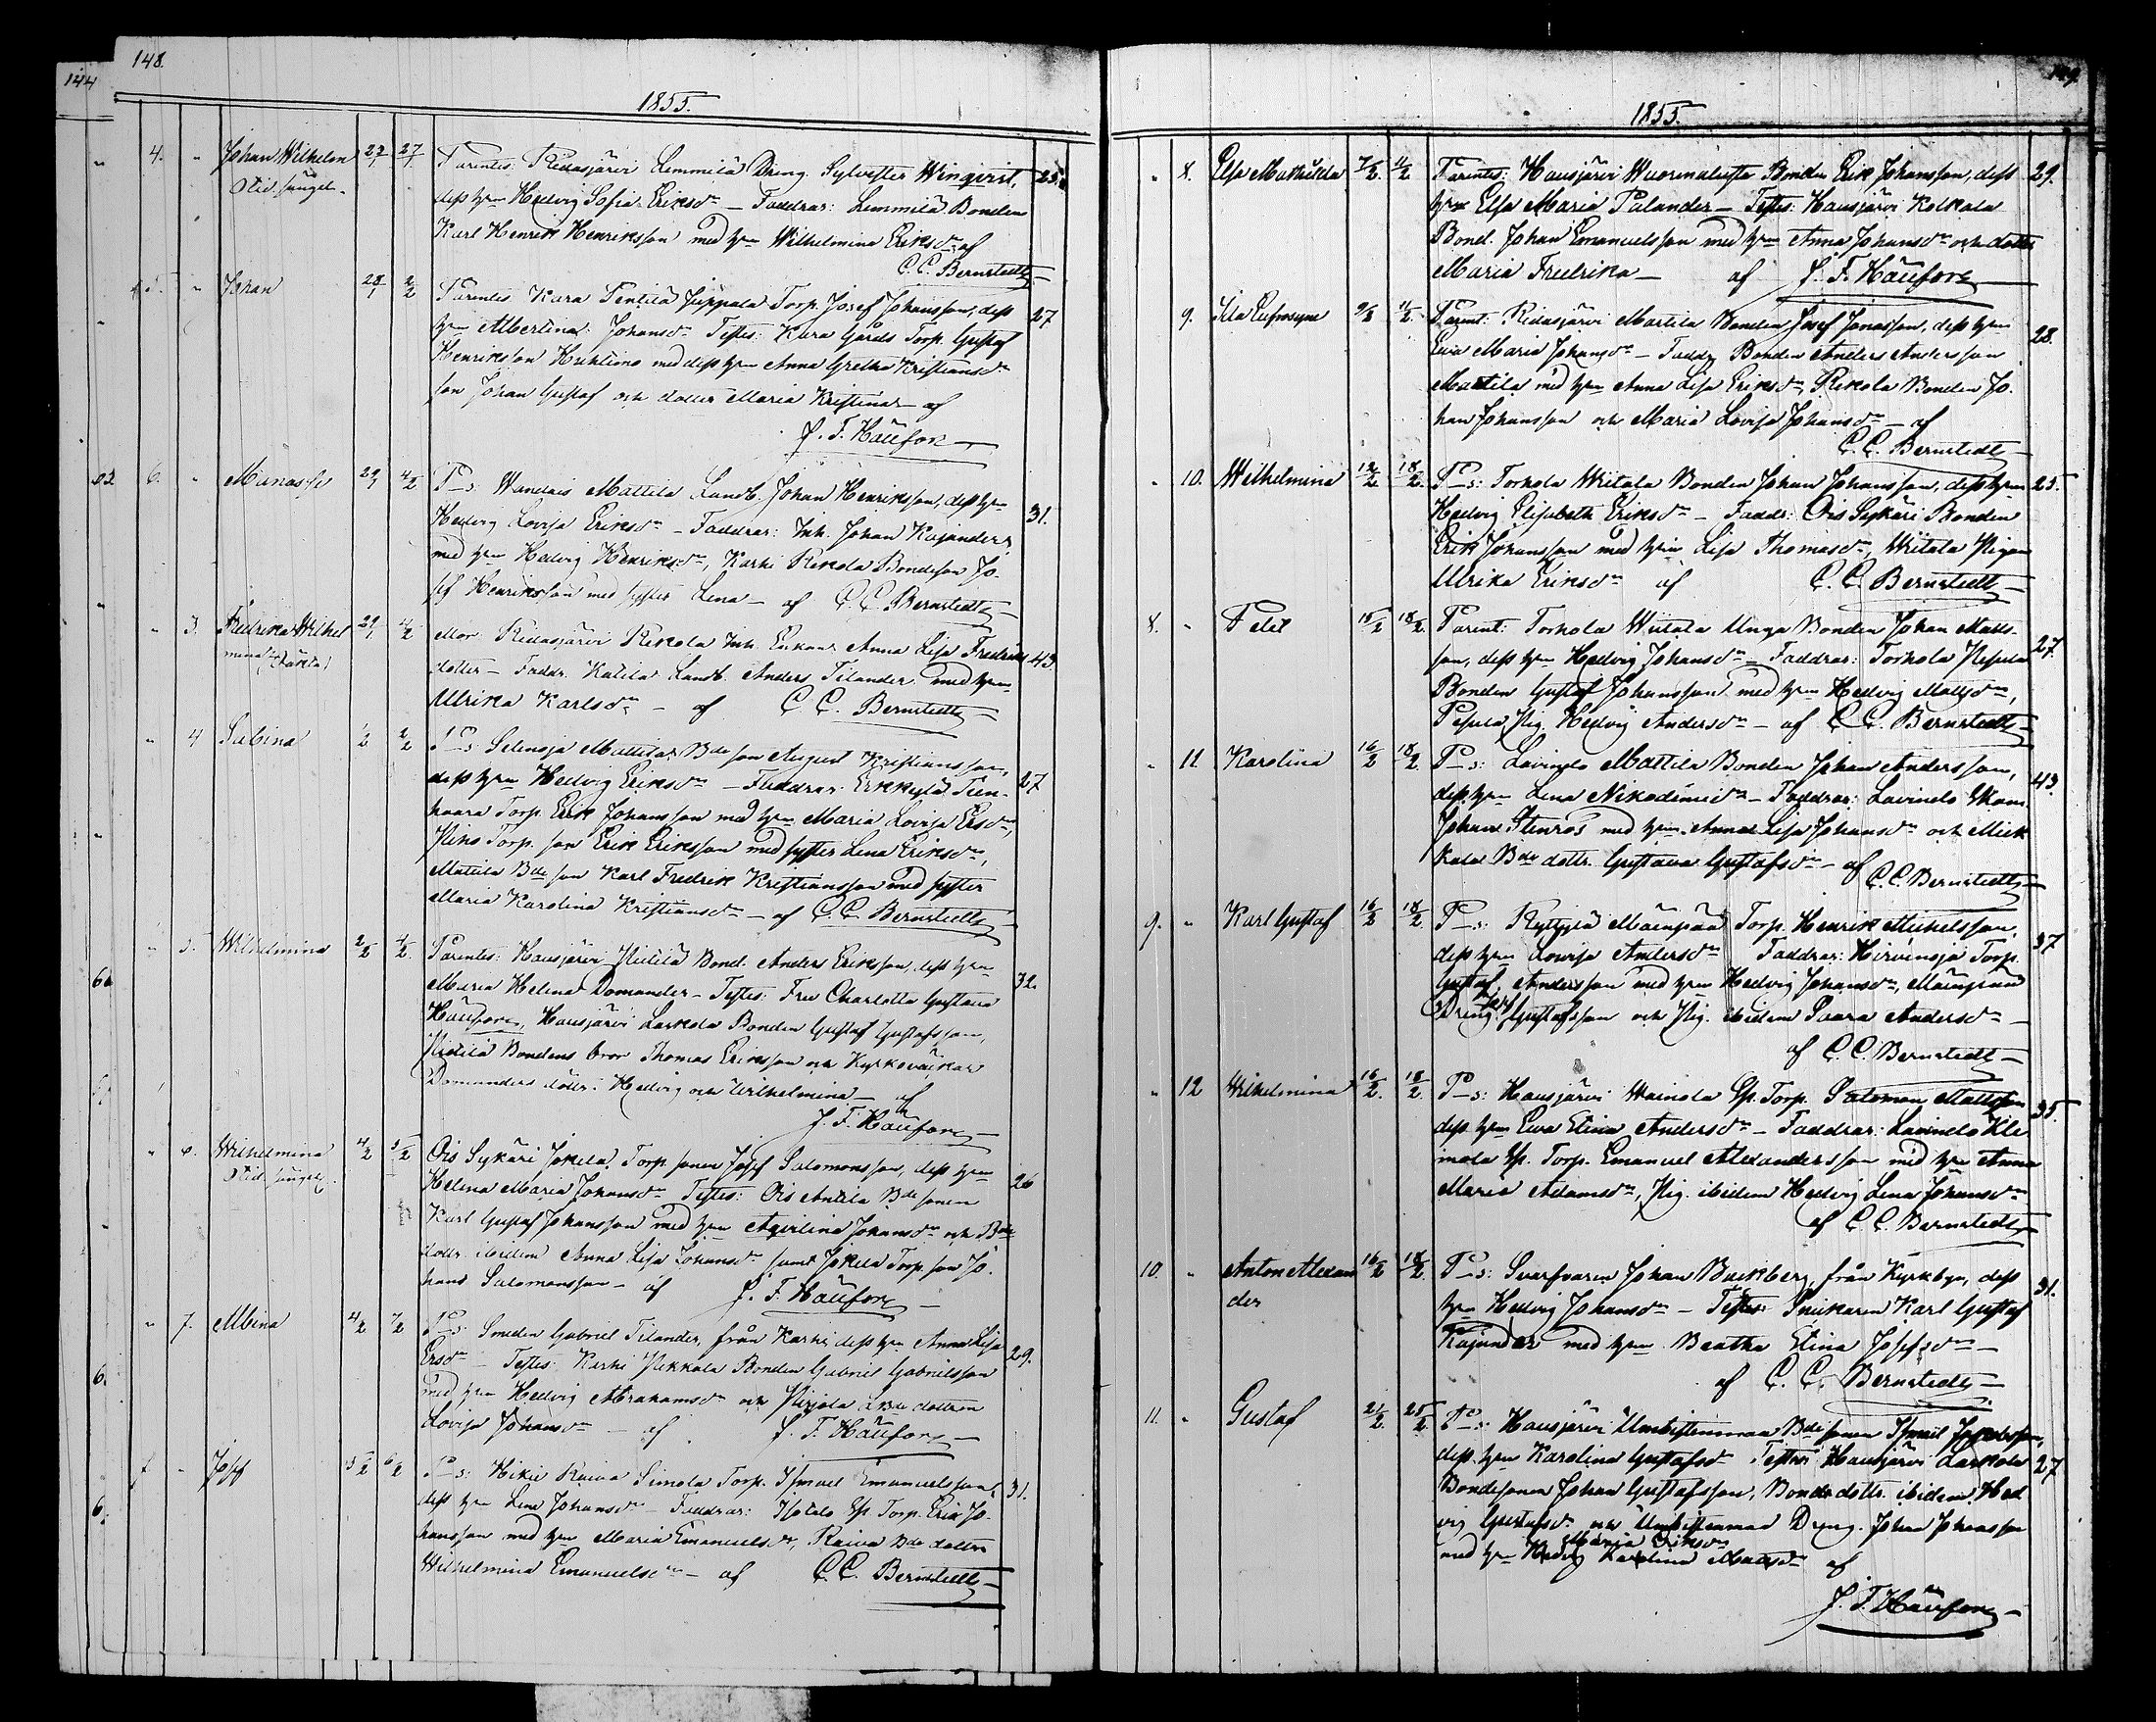 144
148.
1855.
4. " Johan Wilhelm 23/1 27/1 Parentes: Ridasjärvi Lemmilä Dreng. Sylvester Winqvist, 25.
Otid. fångel.
dess hru Hedvig Sofia Eriksdr — Faddrar: Lemmilä Bonden
Karl Henrik Henriksson med hru Wilhelmina Eriksdr af
C. C. Bernstedt
5. " Johan 28/1 2/2 Parentes Kara Pentilä Juppala Torp. Josef Johansson, dess 27
hru Albertina Johansdr Testes: Kara Gårds Torp. Gustaf
Henriksson Huhtiono med dess hru Anna Gretha Kristiansdr
son Johan Gustaf och dotter Maria Kristina — af
J. F. Häufors
6. " Manasse 29/1 4/2 P–s: Wandais Mattila Landb. Johan Henriksson, dess hru 31.
Hedvig Lovisa Eriksdr — Faddrar: Inh. Johan Kajander
med hru Hedvig Henriksdr, Karhi Rekola Bondeson Jo-
sef Henriksson med syster Lena — af C. C. Bernstedt
" 3. Fredrika Wilhel 29/1 4/2 Mor Ridasjärvi Rekola Inh. Enkan Anna Lisa Fredriks 43
mina (oäkta)
dotter — Faddr. Katila Landb. Anders Tilander med hru
Ulrika Karlsdr — af C. C. Bernstedt
" 4 Sabina 1/2 2/2 P–s: Selensja Mattila Bde son August Kristiansson,
dess hru Hedvig Eriksdr — Faddrar: Erkkylä Tien- 27
haara Torp. Erik Johansson med hru Maria Lovisa Ersdr,
Torp. son Erik Eriksson med syster Lena Eriksdr,
Mattila Bde son Karl Fredrik Kristiansson med syster
Maria Karolina Kristiansdr — af C. C. Bernstedt
" 5. Wilhelmina 2/2 4/2 Parentes: Hausjärvi Bond. Anders Eriksson, dess hru
Maria Helena Domander — Testes: Fru Charlotta Gustava 32.
Häufors, Hausjärvi Laskola Bonden Gustaf Gustafsson,
Bondens bror Thomas Eriksson och Kyrkoväktar
Domanders döttr: Hedvig och Wilhelmina — af
J. F. Häufors
" 6. Wilhelmina 4/2 5/2 Ois Sykäri Jokela Torp. sonen Josef Salomonsson, dess hru
Otid. fångel.
Helena Maria Johansdr Testes: Ois Antila Bde sonen 26
Karl Gustaf Johansson med hru Aqvilina Johansdr och Bde
dottr. ibidem Anna Lisa Johansdr samt Jokela Torp. son Jo-
hans Salomonsson — af J. F. Häufors
" 7. Albina 4/2 7/2 P–s: Smeden Gabriel Tilander, från Karhi, dess hru Anna Lisa
Ersdr — Testes: Karhi Pekkala Bonden Gabriel Gabrielsson 29.
med hru Hedvig Abrahamsdr och Pirjola Bde dottren
Lovisa Johansdr — af J. F. Häufors
7 " Josef 5/2 6/2 P–s: Hikie Raiva Simola Torp. Ismael Emanuelsson, 31.
dess hru Lena Johansdr — Faddrar: Torp. Erik Jo-
hansson med hru Maria Emanuelsdr, Raiva Bde dottren
Wilhelmina Emanuelsdr — af C. C. Bernstedt
149
1855.
" 8. Elsa Mathilda 7/2 11/2 Parentes: Hausjärvi Bonden Erik Johansson, dess 29.
hru Elsa Maria Palander — Testes: Hausjärvi Kolkala
Bond. Johan Emanuelsson med hru Anna Johansdr och dotter
Maria Fredrika — af J. F. Häufors
9. Ida Eufrosyne 9/2 11/2 Parent: Ridasjärvi Martila Bonden Josef Jonasson, dess hru 28.
Eva Maria Johansdr — Faddr. Bonden Anders Andersson
Martila med hru Anna Lisa Eriksdr, Rekola Bonden Jo-
han Johansson och Maria Lovisa Johansdr — af
C. C. Bernstedt
" 10. Wilhelmina 12/2 18/2 P–s: Torhola Wiitala Bonden Johan Johansson, dess hru 25.
Hedvig Elisabeth Eriksdr — Faddr: Ois Sykäri Bonden
Erik Johansson med hru Lisa Thomasdr, Wiitala Pigan
Ulrika Eriksdr af C. C. Bernstedt
8. " Felet 15/2 18/2 Parent: Torhola Wiitala Unga Bonden Johan Matts- 27.
son, dess hru Hedvig Johansdr — Faddrar: Torhola
Bonden Gustaf Johansson med hru Hedvig Mattsdr,
Pig. Hedvig Andersdr — af C. C. Bernstedt
" 11. Karolina 16/2 18/2 P–s: Lavinto Mattila Bonden Johan Andersson, 43.
dess hru Lena Nikodemidr — Faddrar: Lavinto Skom.
Johan Stenros med hru Anna Lisa Johansdr och Miek
kala Bde dottr. Gustava Gustafsdr — af
C. C. Bernstedt
9. " Karl Gustaf 16/2 18/2 P–s: Ryttylä Mäenpää Torp. Henrik Michelsson, 37
dess hru Lovisa Andersdr Faddrar: Hirvensja Torp.
Gustaf Andersson med hru Hedvig Johansdr, Mäenpää
Dreng Gustafsson och Pig. ibidem Saara Andersdr —
af C. C. Bernstedt
" 12 Wilhelmina 16/2 18/2 P–s: Hausjärvi Wainola Sp. Torp. Salomon Mattsson 35.
dess hru Eva Stina Andersdr — Faddrar: Lavinto Kle-
mola Sp. Torp. Emanuel Alexandersson med hru Anna
Maria Adamsdr, Pig. ibidem Hedvig Lena Johansdr
af C. C. Bernstedt
10. " Anton Alexan 16/2 18/2 P–s: Svarfvaren Johan Backberg, från Kyrkbyn, dess 31.
der
hru Hedvig Johansdr — Testes: Snickaren Karl Gustaf
Kajander med hru Beatha Stina Josefsdr —
af C. C. Bernstedt
11. " Gustaf 21/2 25/2 P–s: Hausjärvi Bde sonen Ismael
dess hru Karolina Gustafsdr Testes: Hausjärvi Laskola 27
Bondesonen Johan Gustafsson, Bonde dottr. ibidem Hed
vig Gustafsdr och Dreng. Johan Johansson
Maria Eriksdr
med hru af
J. F. Häufors